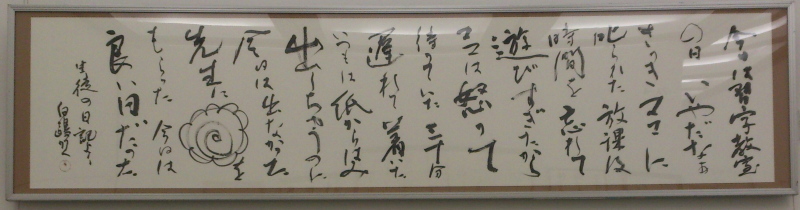 今日は習字教室
の日 いやだなぁ
さっき ママに
叱られた 放課後
時間を 忘れて
遊びすぎたから
ママは怒って
待っていた 三十分
遅れて 着いた
いつもは 紙からはみ
出しちゃうのに
今日は出なかった
先生に を
もらった 今日は
良い日だった
生徒の日記より